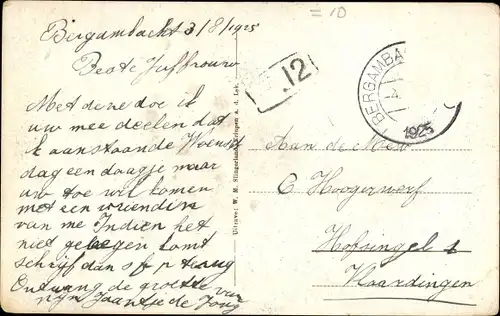 Bergambacht 3/8/1925
Beste Juffrouw
Met deze doe ik
uw mee deelen dat
ik aanstaande Woens
dag een daagje naar
uw toe wil komen
met een vriendin
van me Indien het
niet gelegen komt
schrijf dan s f p terug
Ontvang de groeten van
mijn Jaantje de Jong
Uitgave: W. M. Slingerland, a. d. Lek.
= 10
12
BERGAMBA
1925
Aan de Mew
C Hoogerwerf
Hofsingel 1
Vlaardingen